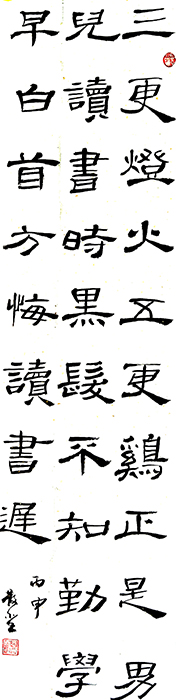 三更燈火五更鷄正是男
兒讀書時黑髮不知勤學
早白首方悔讀書遲
丙申